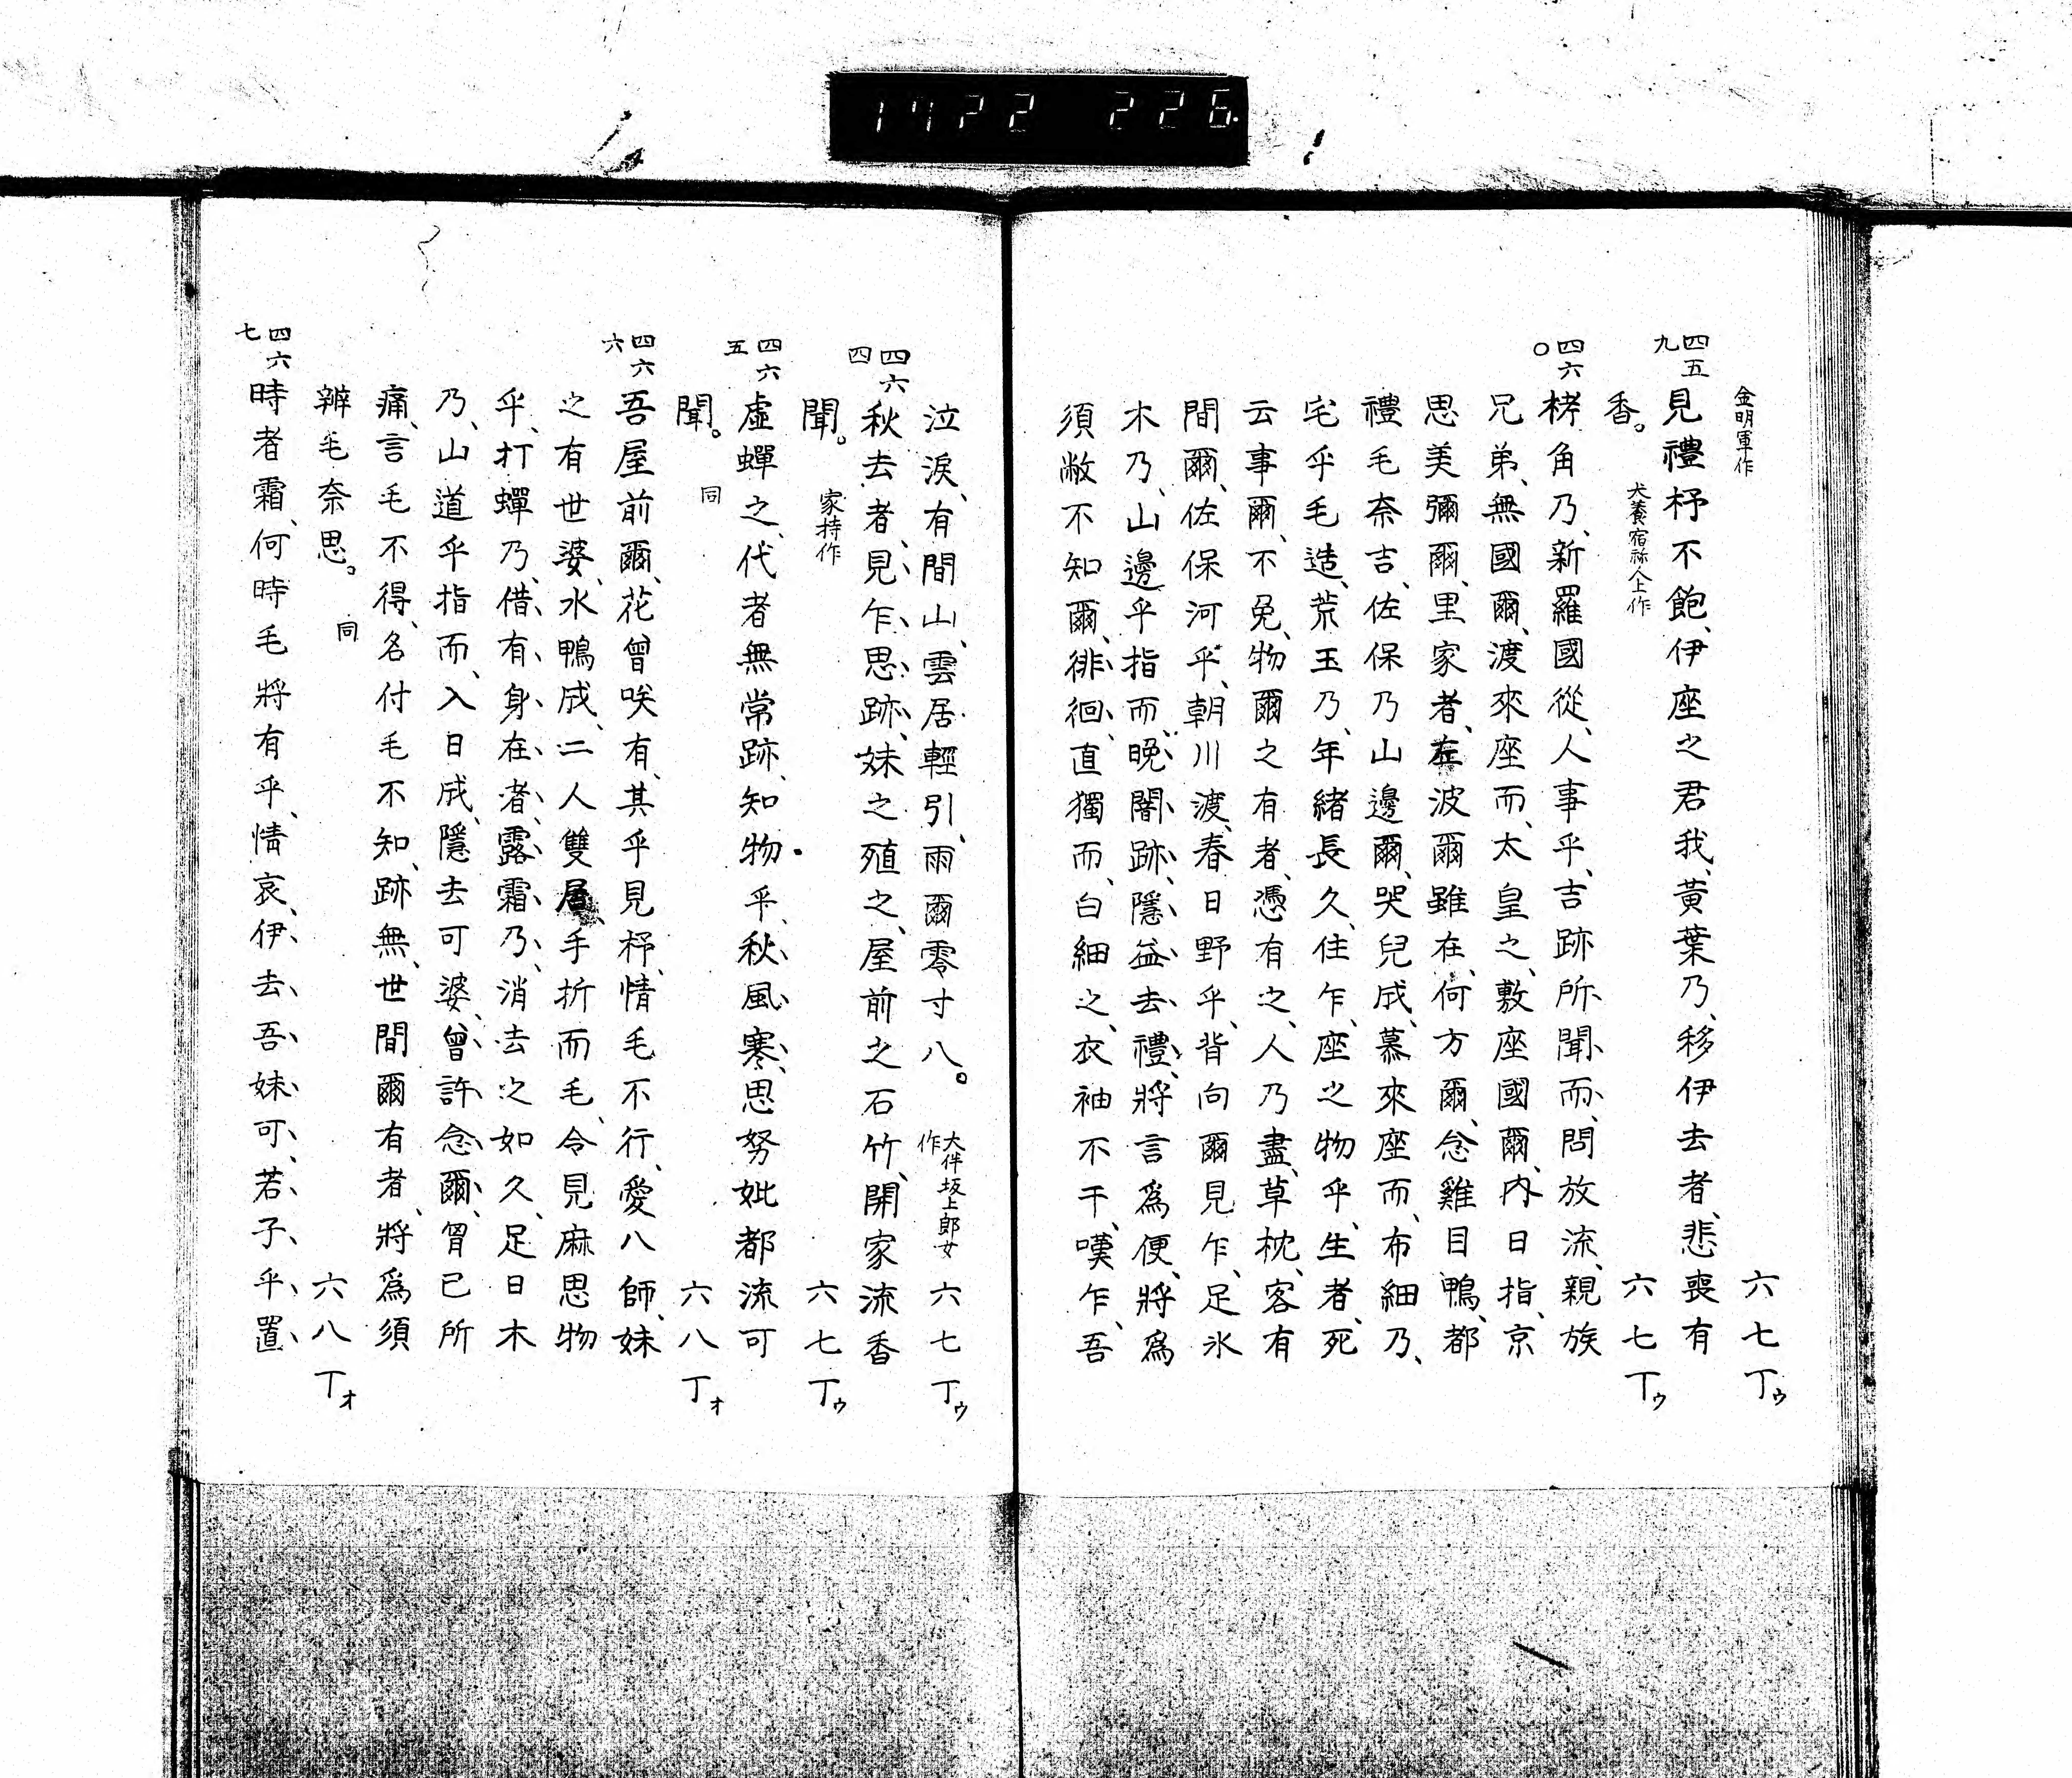 1722 226
金明軍作 六七丁ゥ
四五九 見禮杼不飽、伊座之君我、黃葉乃、移伊去者、悲喪有
香。 犬養宿祢人上作 六七丁ゥ
四六〇 栲角乃、新羅國從、人事乎、吉跡所聞而、問放流、親族
兄弟、無國爾、渡來座而、太皇之、敷座國爾、內日指、京
思美彌爾、里家者、左波爾雖在、何方爾、念雞目鴨、都
禮毛奈吉、佐保乃山邊爾、哭兒成、慕來座而、布細乃、
宅乎毛造、荒玉乃、年緒長久、住乍、座之物乎、生者、死
云事爾、不免、物爾之有者、憑有之、人乃盡、草枕、客有
間爾、佐保河乎、朝川渡、春日野乎、背向爾見乍、足氷
木乃、山邊乎指而、晚闇跡、隱益去禮、將言爲便、將爲
須敝不知爾、徘徊、直獨而、白細之、衣袖不干、嘆乍、吾
泣淚、有間山、雲居輕引、雨爾零寸八。 大伴坂上郎女作 六七丁ゥ
四六四 秋去者、見乍思跡、妹之殖之、屋前之石竹、開家流香
聞。 家持作 六七丁ゥ
四六五 虛蟬之、代者無常跡、知物乎、秋風寒、思努妣都流可
聞。 同 六八丁ォ
四六六 吾屋前爾、花曾咲有、其乎見杼、情毛不行、愛八師、妹
之有世婆、水鴨成、二人雙居、手折而毛、令見麻思物
乎、打蟬乃、借有身在者、露霜乃、消去之如久、足日木
乃、山道乎指而、入日成、隱去可婆、曾許念爾、胷己所
痛、言毛不得、名付毛不知、跡無、世間爾有者、將爲須
辨毛奈思。 同 六八丁ォ
四六七 時者霜、何時毛將有乎、情哀、伊去吾妹可、若子乎置